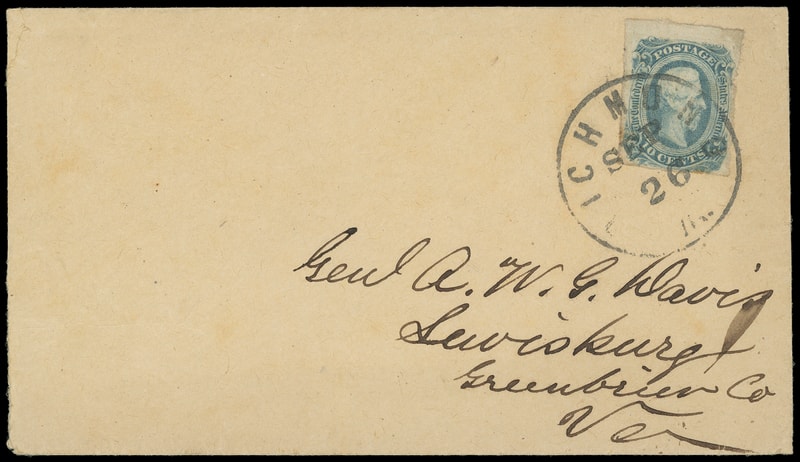 POSTAGE
The Confederate States America
10 CENTS
ICHMON
SEP
26
Genl A. W. G. Davis
Lewisburg
Greenbrier Co
Va